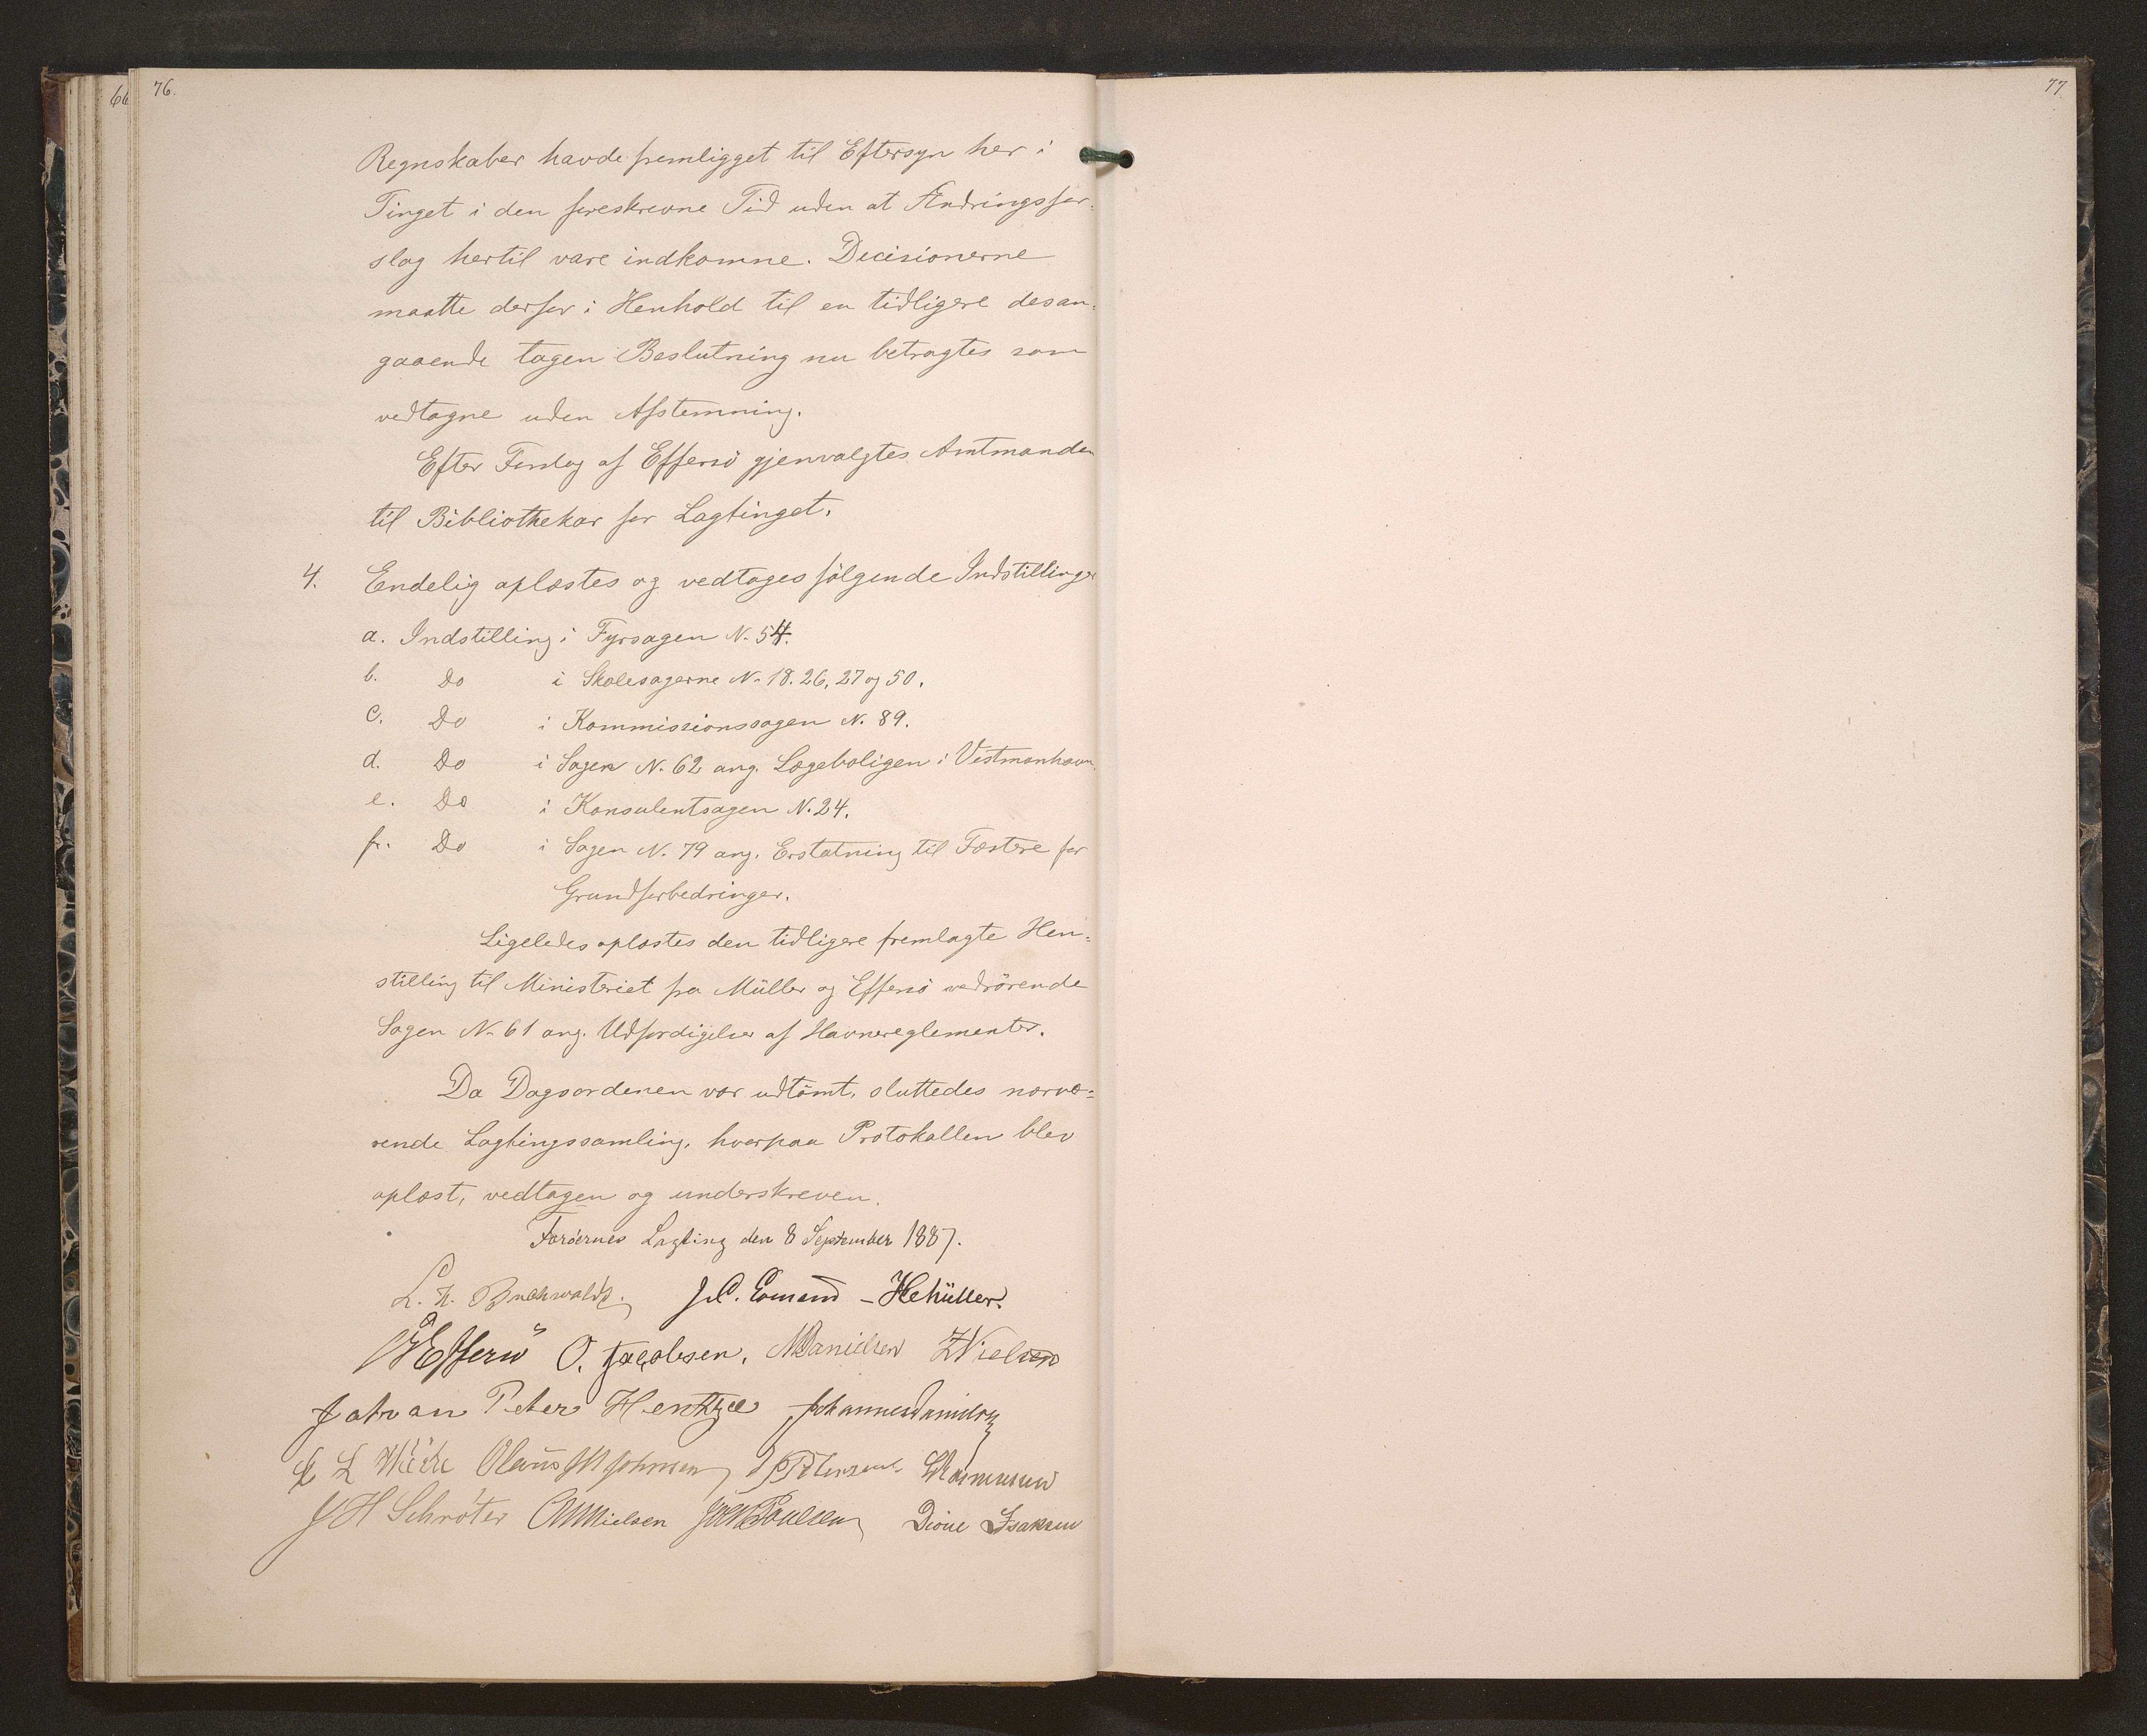 66
76.
77
Regnskaber havde fremligget til Eftersyn her i
Tinget i den foreskrevne Tid uden at Ændringsfor-
slag hertil vare indkomne. Decisionerne
maatte derfor i Henhold til en tidligere desan-
gaaende tagen Beslutning nu betragtes som
vedtagne uden Afstemning.
Efter Forslag af Effersö gjenvalgtes Amtmanden
til Bibliothekar for Lagtinget.
4. Endelig oplæstes og vedtages følgende Indstillinger
a. Indstilling i Fyrsagen N. 54.
b. Do i Skolesagerne N. 18. 26, 27 og 50.
c. Do i Kommissionssagen N. 89.
d. Do i Sagen N. 62 ang. Lægeboligen i Vestmanhavn.
e. Do i Konsulentsagen N. 24.
f. Do i Sagen N. 79 ang. Erstatning til Fæstere for
Grundforbedringer.
Ligeledes oplæstes den tidligere fremlagte Hen-
stilling til Ministeriet fra Müller og Effersö vedrörende
Sagen N. 61 ang. Udfærdigelse af Havnereglementer.
Da Dagsordenen var udtömt, sluttedes nærvæ-
rende Lagtingssamling, hvorpaa Protokollen blev
oplæst, vedtagen og underskreven.
Færöernes Lagting den 8 September 1887.
L. Buchwaldt. HCMüller.
Effersö O. Jacobsen. MDanielsen ZNielsen
Johan Peter Hentze Johannes Danielsen
L Olaus Johnsen Petersen Rasmussen
J H Schröter Nielsen Poulsen Isaksen